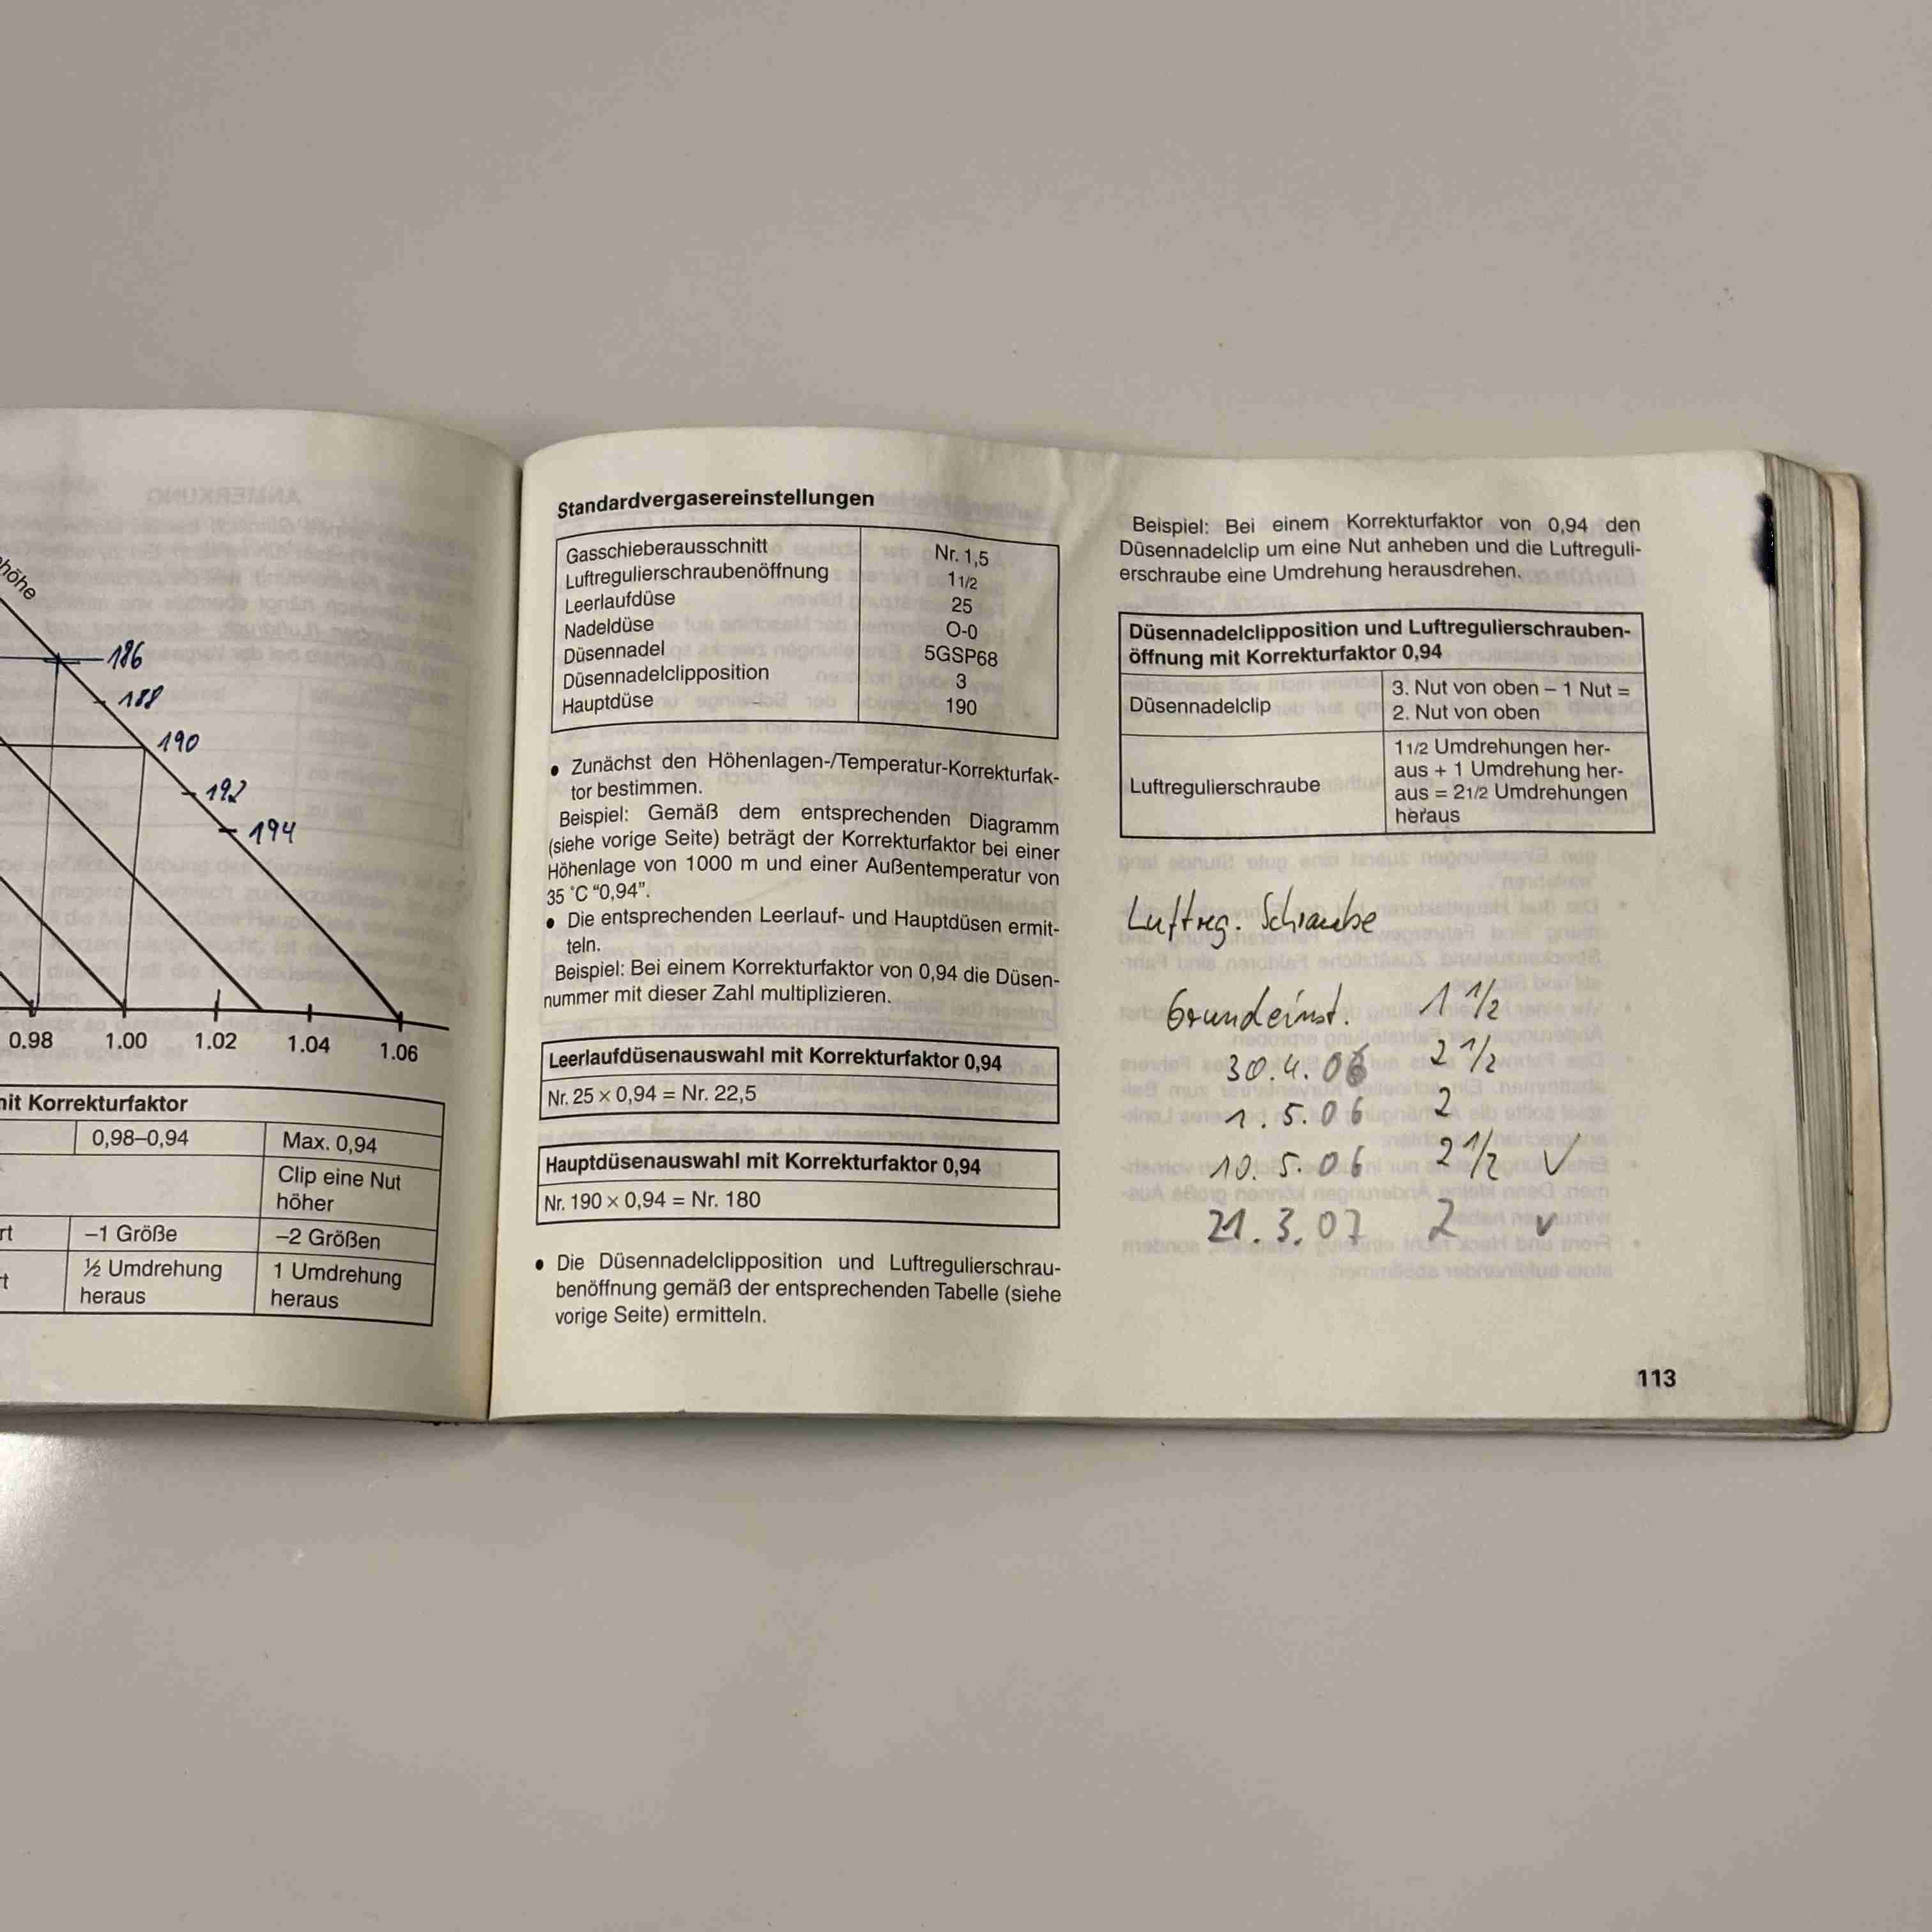 höhe
186
188
190
192
194
0.98 1.00 1.02 1.04 1.06
mit Korrekturfaktor
0,98–0,94 Max. 0,94
Clip eine Nut
höher
–1 Größe –2 Größen
½ Umdrehung 1 Umdrehung
heraus heraus
Standardvergasereinstellungen
Gasschieberausschnitt Nr. 1,5
Luftregulierschraubenöffnung 1 1/2
Leerlaufdüse 25
Nadeldüse O-0
Düsennadel 5GSP68
Düsennadelclipposition 3
Hauptdüse 190
• Zunächst den Höhenlagen-/Temperatur-Korrekturfak-
tor bestimmen.
Beispiel: Gemäß dem entsprechenden Diagramm
(siehe vorige Seite) beträgt der Korrekturfaktor bei einer
Höhenlage von 1000 m und einer Außentemperatur von
35 °C “0,94”.
• Die entsprechenden Leerlauf- und Hauptdüsen ermit-
teln.
Beispiel: Bei einem Korrekturfaktor von 0,94 die Düsen-
nummer mit dieser Zahl multiplizieren.
Leerlaufdüsenauswahl mit Korrekturfaktor 0,94
Nr. 25 × 0,94 = Nr. 22,5
Hauptdüsenauswahl mit Korrekturfaktor 0,94
Nr. 190 × 0,94 = Nr. 180
• Die Düsennadelclipposition und Luftregulierschrau-
benöffnung gemäß der entsprechenden Tabelle (siehe
vorige Seite) ermitteln.
Beispiel: Bei einem Korrekturfaktor von 0,94 den
Düsennadelclip um eine Nut anheben und die Luftreguli-
erschraube eine Umdrehung herausdrehen.
Düsennadelclipposition und Luftregulierschrauben-
öffnung mit Korrekturfaktor 0,94
Düsennadelclip 3. Nut von oben – 1 Nut =
2. Nut von oben
Luftregulierschraube 1 1/2 Umdrehungen her-
aus + 1 Umdrehung her-
aus = 2 1/2 Umdrehungen
heraus
Luftreg. Schraube
Grundeinst. 1 1/2
30.4.06 2 1/2
1.5.06 2
10.5.06 2 1/2 ✓
21.3.07 2 ✓
113